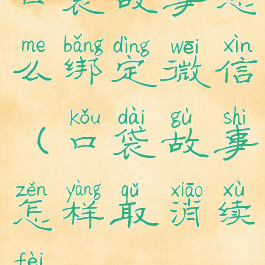 口袋故事怎
me bǎng dìng wēi xìn
么绑定微信
kǒu dài gù shì
（口袋故事
zěn yàng qǔ xiāo xù
怎样取消续
fèi